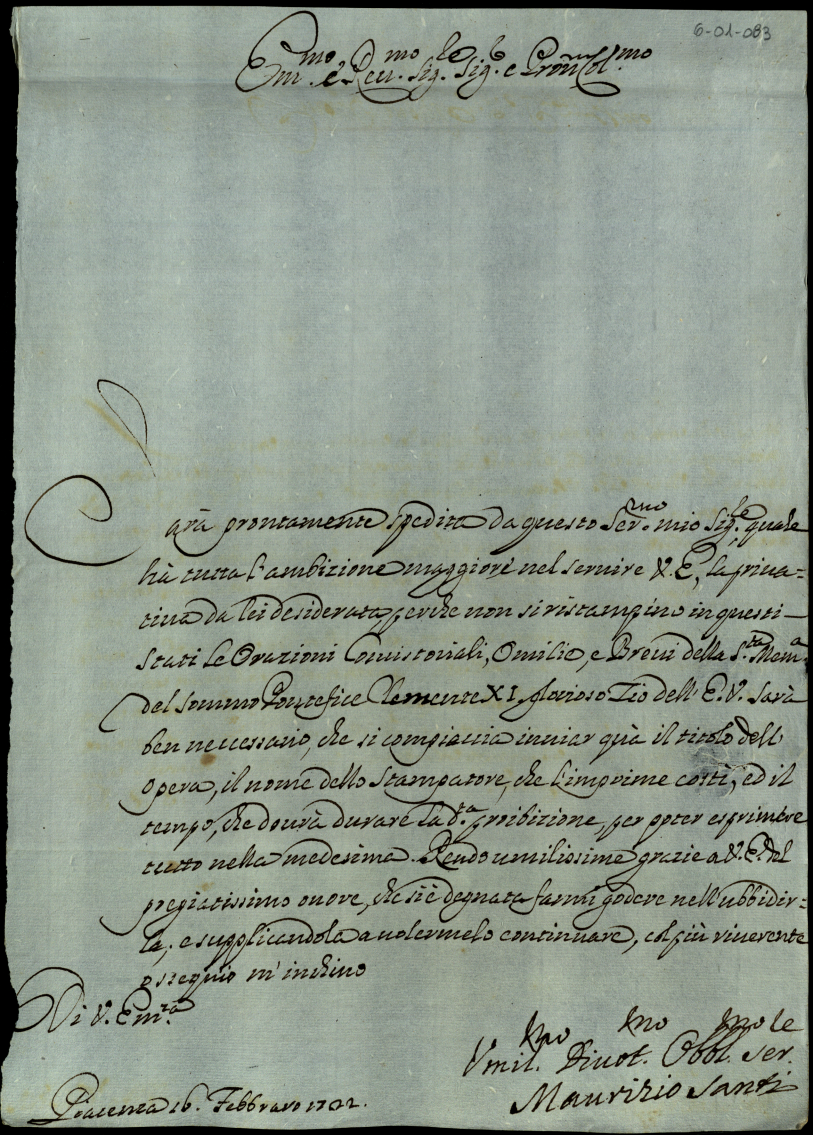 6-01-083
Em.mo e Rev.mo Sig.re Sig.re e Pron Col.mo
Sarà prontamente spedita da questo Ser.mo mio Sig.re, quale
hà tutta l'ambizione maggiore nel servire V. E., la priva=
tiva da lei desiderata, perche non si ristampino in questi
Stati le Orazioni Concistoriali, Omilie, e Brevi della S.ta Mem.a
del sommo Pontefice Clemente XI. glorioso Zio dell' E. V. Sarà
ben neccessario, che si compiaccia inviar quà il titolo dell
opera, il nome dello Stampatore, che l'imprime costì, ed il
tempo, che dovrà durare la d.ta proibizione, per poter esprimere
tutto nella medesima. Rendo umilissime grazie a V. E. del
pregiatissimo onore, che si è degnata farmi godere nell'ubbidir=
la; e supplicandola a volermelo continuare, col più riverente
ossequio m'inchino
Di V. Em.za
Vmil.mo Divot.mo Obbl.mo Ser.le
Piacenza 16. Febbraro 1722.
Maurizio Santi